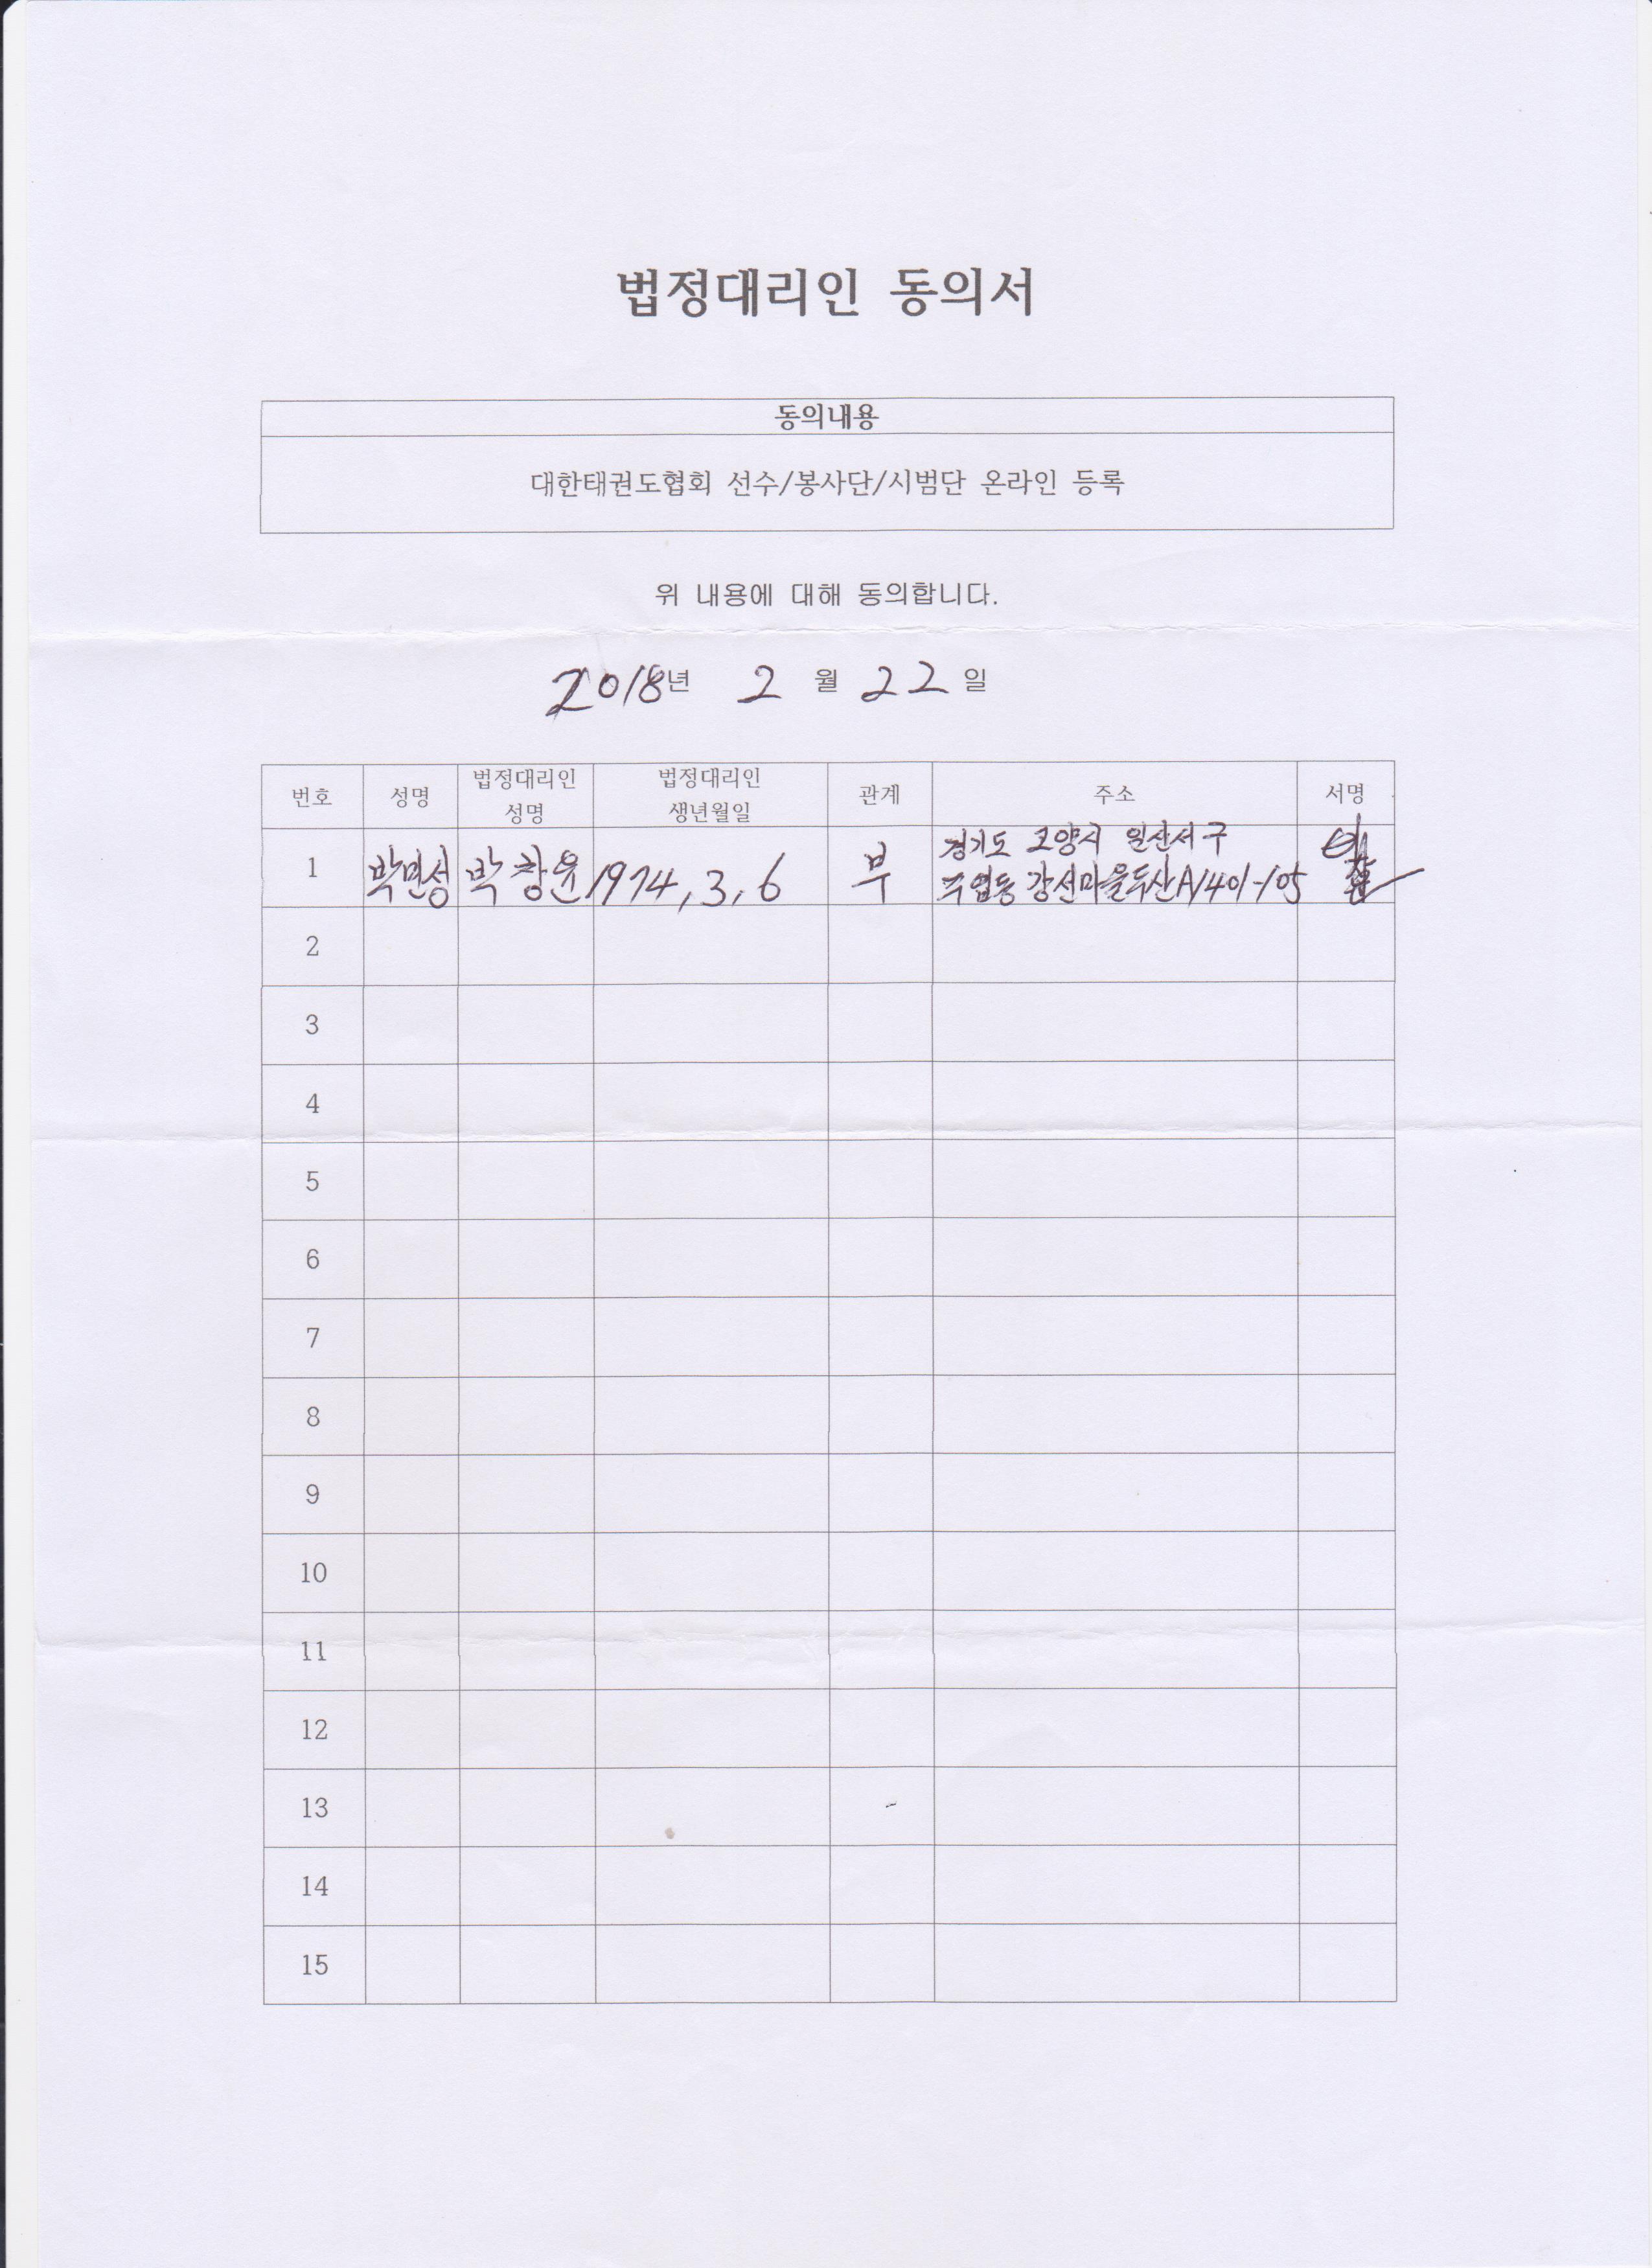 법정대리인 동의서
동의내용
대한태권도협회 선수/봉사단/시범단 온라인 등록
위 내용에 대해 동의합니다.
2018년 2 월 22 일
번호 성명 법정대리인 성명 법정대리인 생년월일 관계 주소 서명
1 박민성 박창윤 1974, 3, 6 부 경기도 고양시 일산서구
주엽동 강선마을두산A 1401-105
2
3
4
5
6
7
8
9
10
11
12
13
14
15